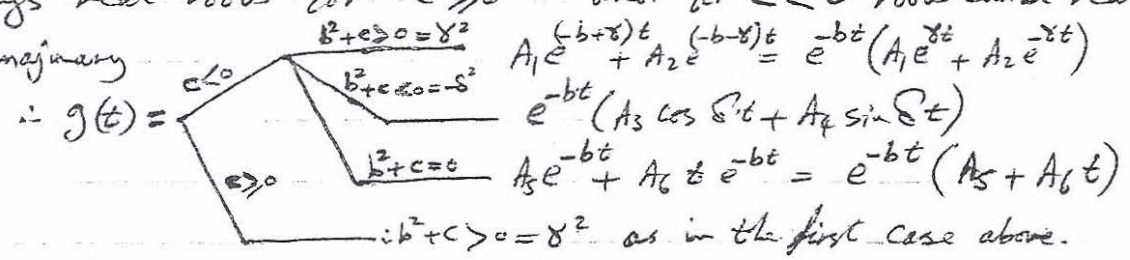 real roots for
b²+c>0=γ² A₁e^(-b+γ)t + A₂e^(-b-γ)t = e^-bt (A₁e^γt + A₂e^-γt)
c<0 b²+c<0=-δ² e^-bt (A₃ cos δt + A₄ sin δt)
∴ g(t) =
b²+c=0 A₅e^-bt + A₆ t e^-bt = e^-bt (A₅ + A₆t)
c≥0
∴ b²+c>0=γ² as in the first case above.